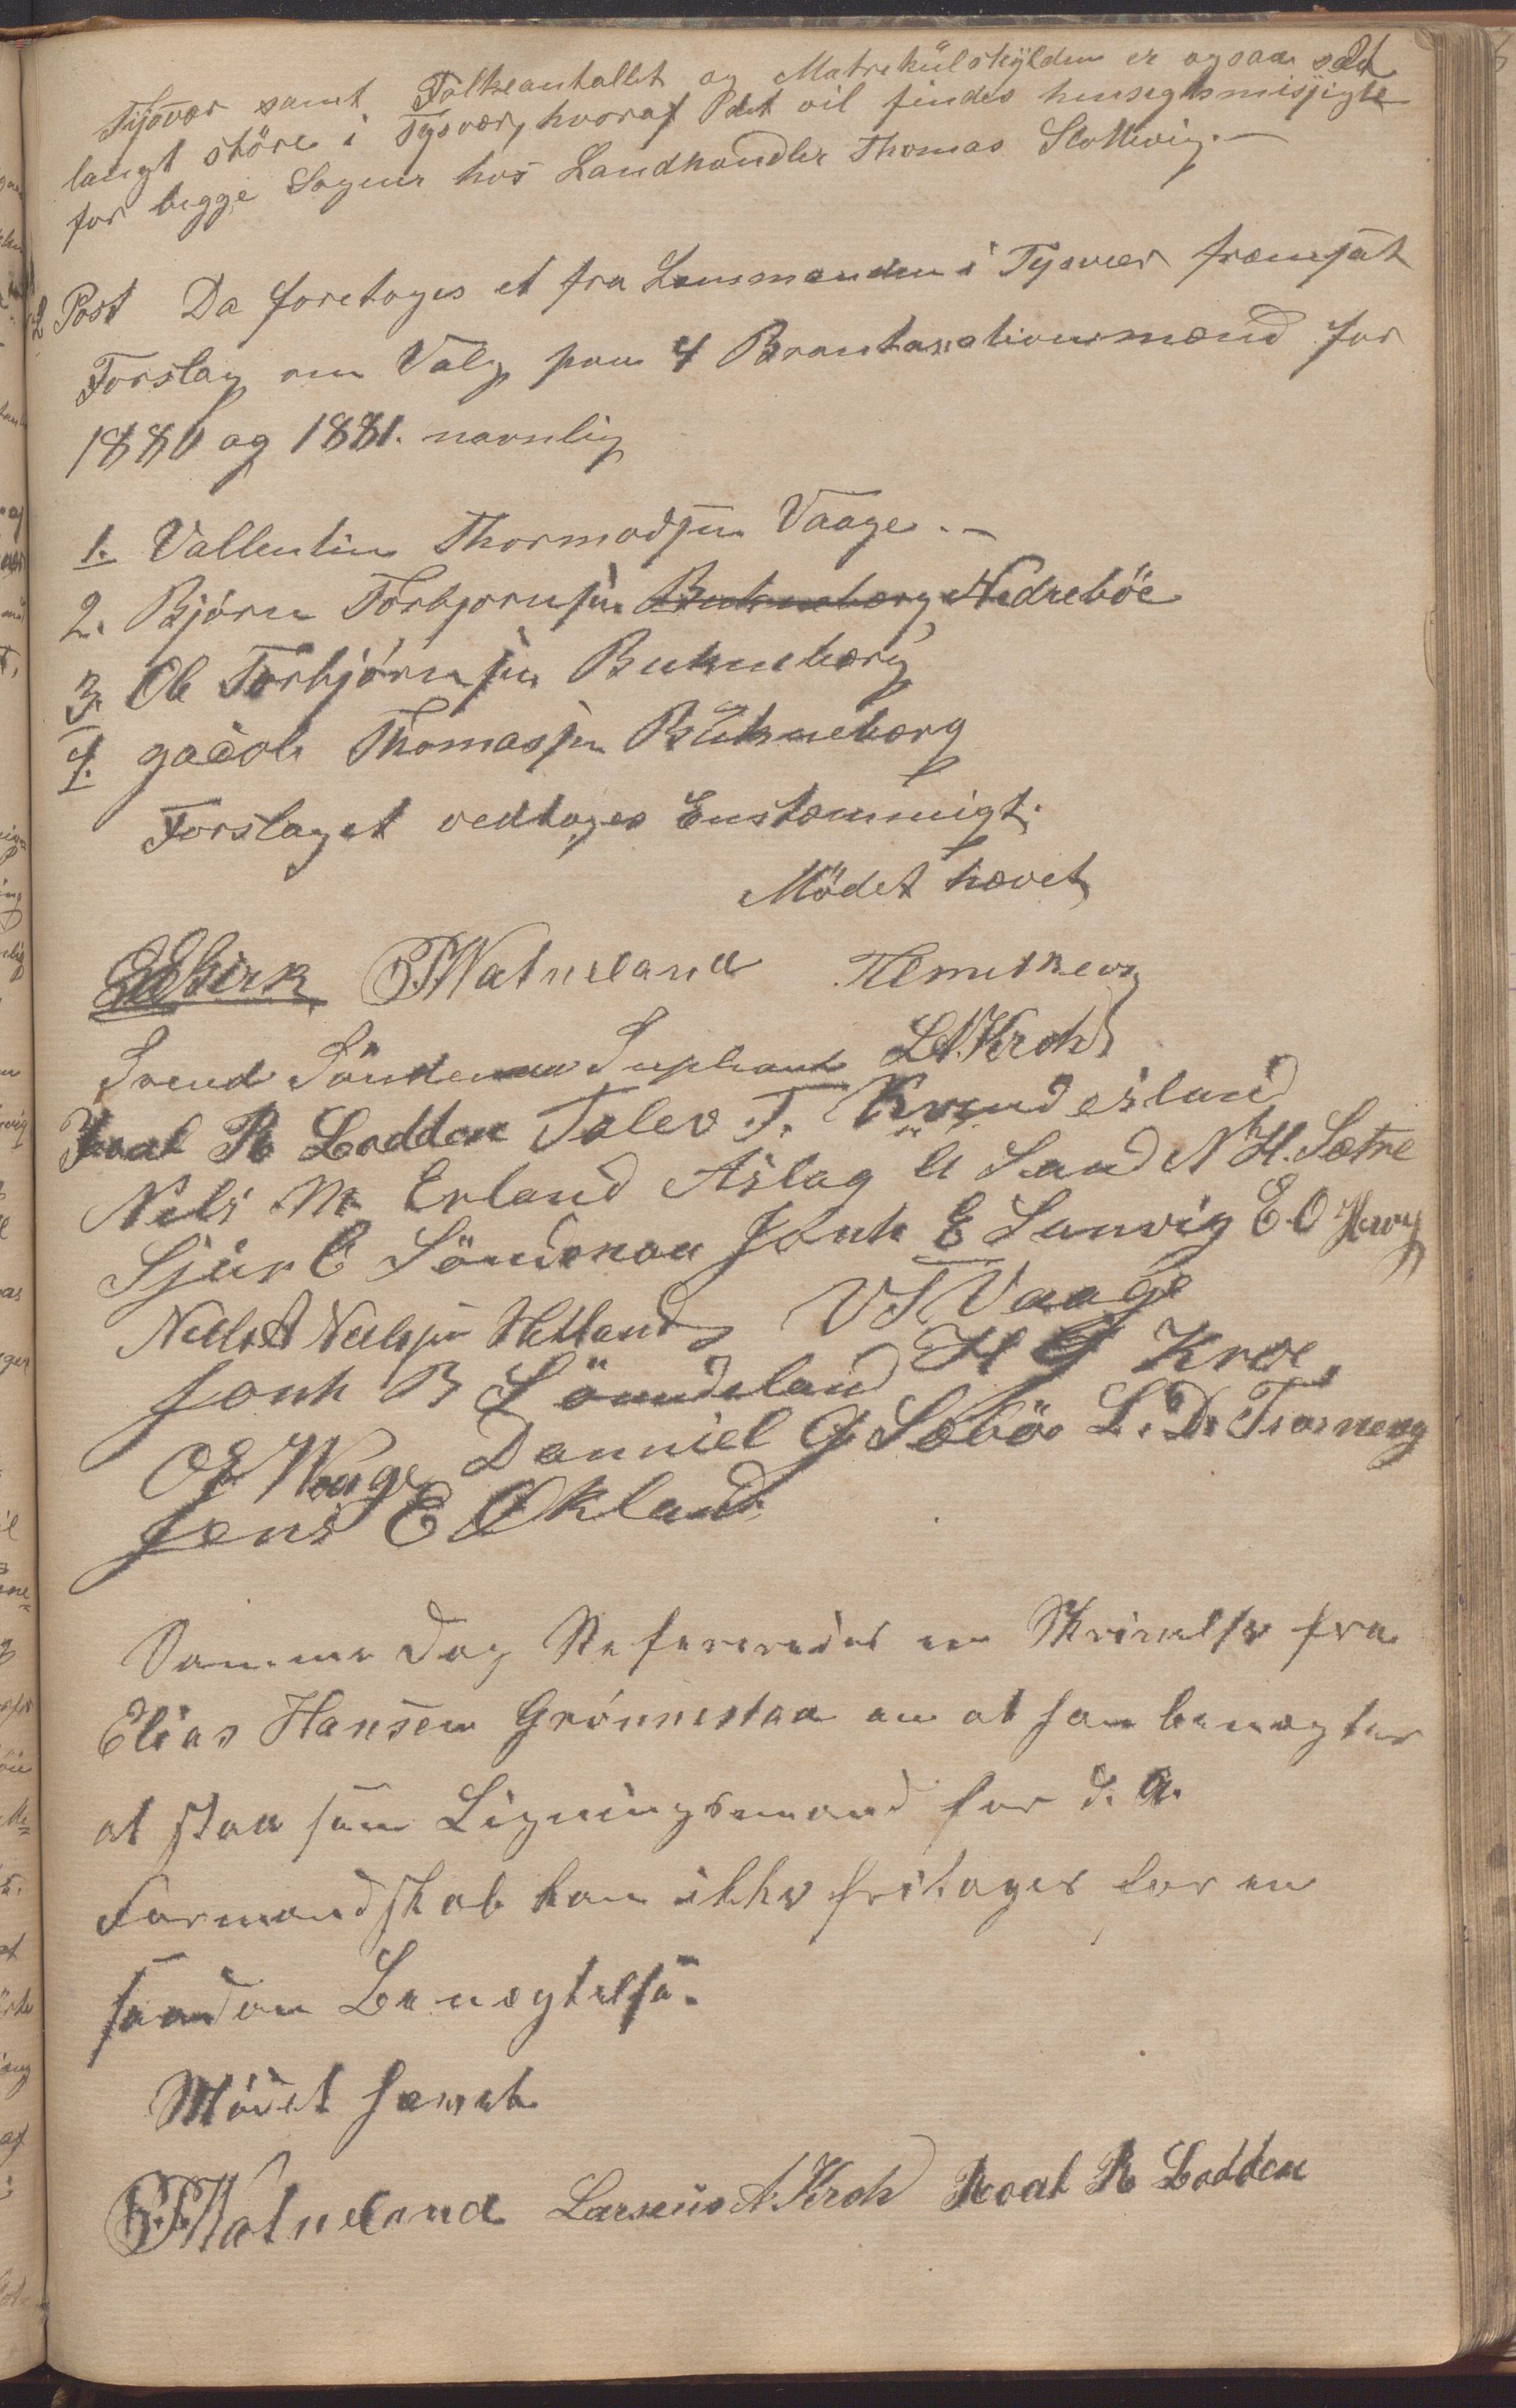 Tysvær samt Folkeantallet og Matrikülskÿlden er ogsaa sat
langt störe i Tysvær, hvoraf det vil findes hensigtsmisjigte
for begge Sogner hos Landhandler Thomas Slottevig.—
2 Post Da foretoges et fra Lensmanden i Tysvær fræmsat
Forslag om Valg paa 4 Brantaxationsmænd for
1880 og 1881. navnlig
1. Vallentin Thormodsen Vaage.—
2. Björn Torbjornsen Nedreböe
3. Ole Torbjörnsen Bukneberg
4. Jacob Thomassen Bükneberg
Forslaget vedtages Enstæmmigt.
Mödet hævet
B. Watneland
Svend Söndenaa L A. Kroh
Roal R Lodden Tolev T. Kvindesland
Nels M Erland Aslag A Sand N H. Sætre
Sjür E Söndenaa Jonh E Sanvig E O
Neels A Neelsen Hetland V T Vaage
Jonh B Söundeland H J Kroe,
O E Waage Danniel G Seböe L. D.
Jens E Økland
Samme Dag Refereredes en Skrivelse fra
Elias Hansen Grönnestaa om at han benægter
at staa som Ligningsmand for d. A.
Formandskab kan ikke fritages for en
saadan Benægtelse.
Mödet hævet
B. Watneland Larseus A. Kroh Roal R Lodden